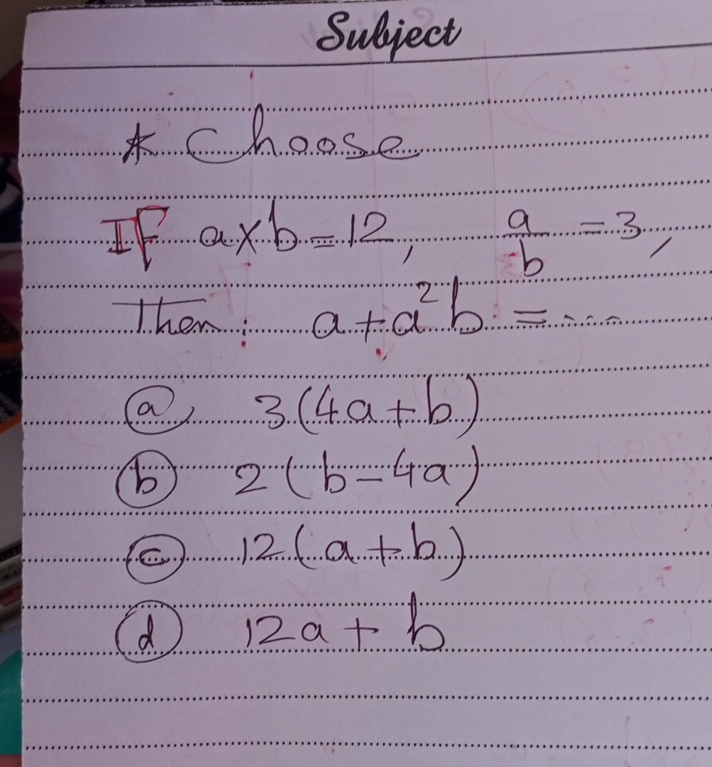 Subject
* Choose
If a×b=12, a/b =3,
Then: a+a²b =....
ⓐ 3(4a+b)
ⓑ 2(b-4a)
ⓒ 12(a+b)
ⓓ 12a+b